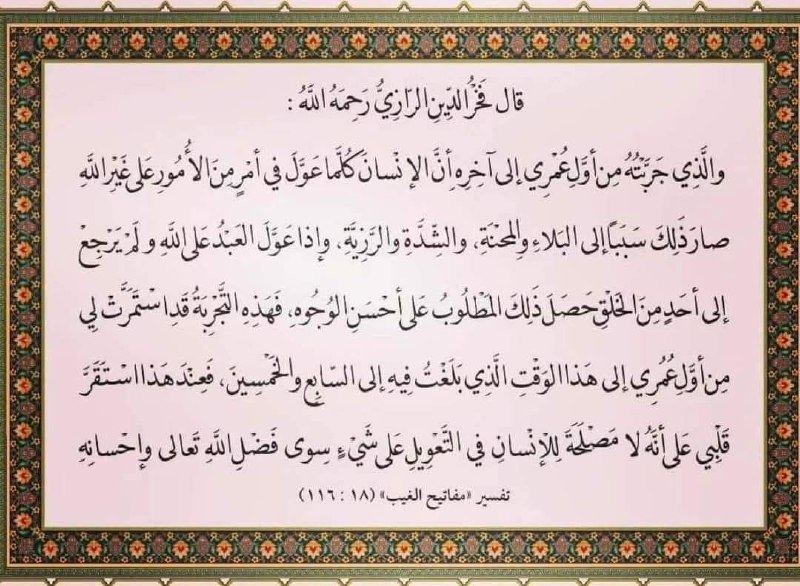 قال فَخْرُ الدِّينِ الرَّازِيُّ رَحِمَهُ اللَّهُ :
والَّذِي جَرَّبْتُهُ مِن أوَّلِ عُمْرِي إلى آخِرِهِ أنَّ الإنْسانَ كُلَّما عَوَّلَ في أمْرٍ مِنَ الأُمُورِ عَلى غَيْرِ اللَّهِ
صارَ ذَلِكَ سَبَبًا إلى البَلاءِ والمِحْنَةِ، والشِّدَّةِ والرَّزِيَّةِ، وإذا عَوَّلَ العَبْدُ عَلى اللَّهِ ولَمْ يَرْجِعْ
إلى أحَدٍ مِنَ الخَلْقِ حَصَلَ ذَلِكَ المَطْلُوبُ عَلى أحْسَنِ الوُجُوهِ، فَهَذِهِ التَّجْرِبَةُ قَدِ اسْتَمَرَّتْ لِي
مِن أوَّلِ عُمُرِي إلى هَذا الوَقْتِ الَّذِي بَلَغْتُ فِيهِ إلى السّابِعِ والخَمْسِينَ، فَعِنْدَ هَذا اسْتَقَرَّ
قَلْبِي عَلى أنَّهُ لا مَصْلَحَةَ لِلْإنْسانِ في التَّعْوِيلِ عَلى شَيْءٍ سِوى فَضْلِ اللَّهِ تَعالى وإحْسانِهِ
تفسير «مفاتيح الغيب» (١٨ : ١١٦)